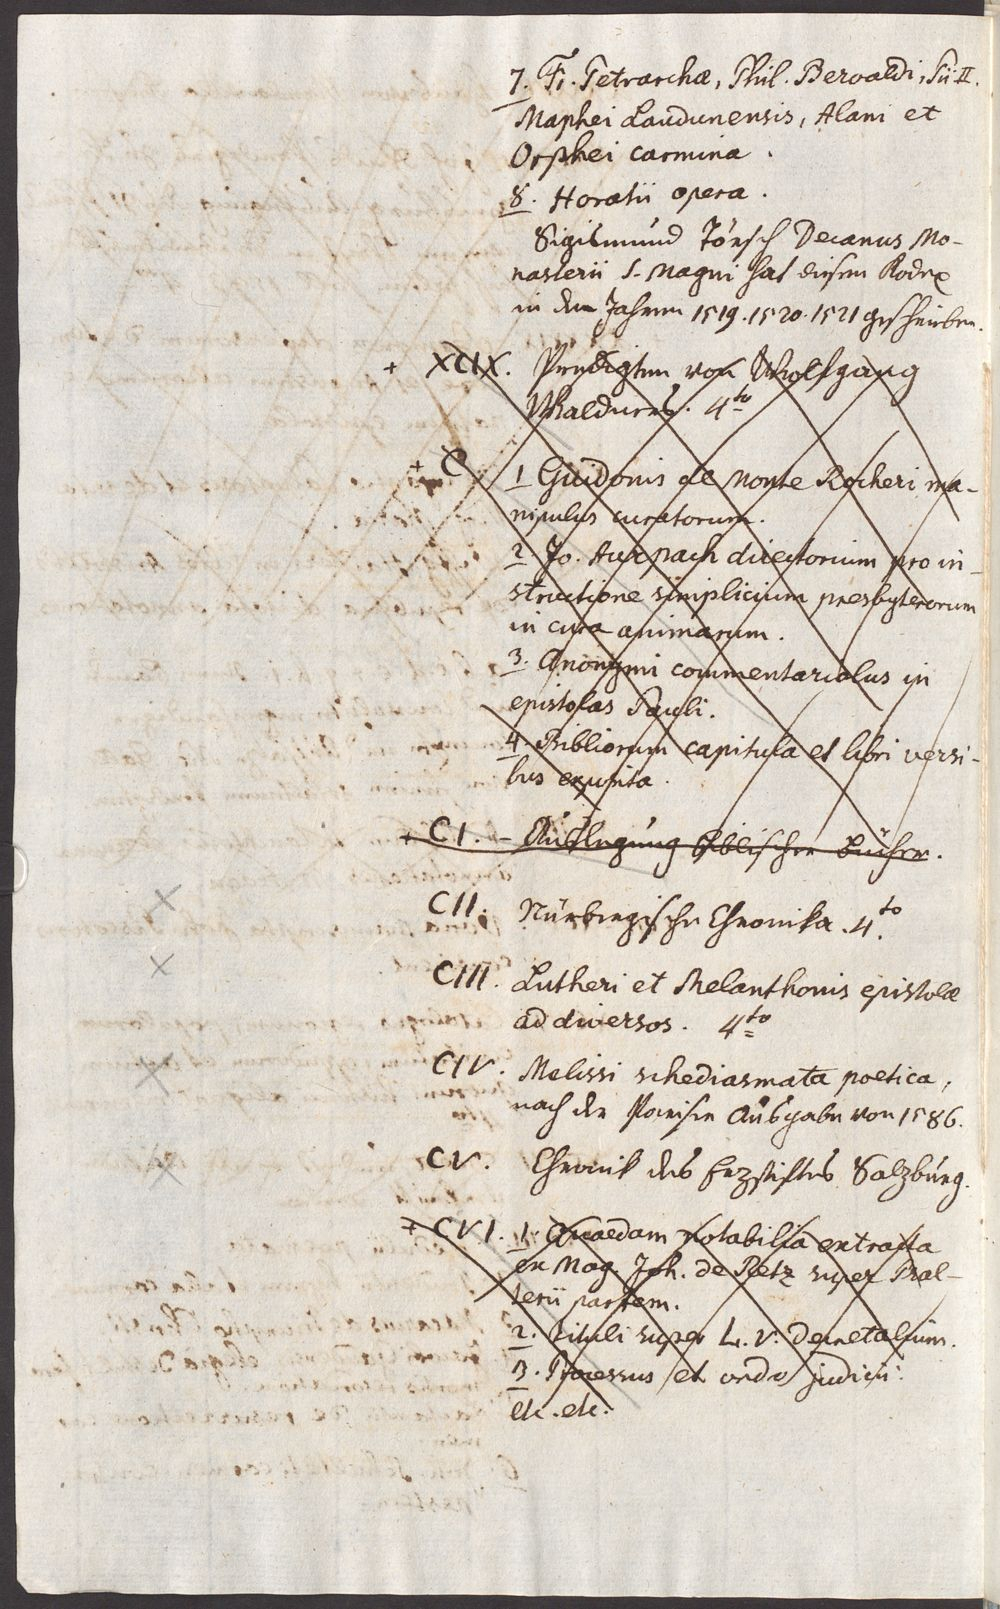 7. Fr. Petrarchæ, Phil. Beroaldi, Pii II.
Maphei Laudunensis, Alani et
Orphei carmina.
8. Horatii opera.
Sigismund Törsch Decanus Mo-
nasterii S. Magni hat diesen Kodex
in den Jahren 1519. 1520. 1521 geschrieben.
+ XCIX. Predigten von Wholfgang
Whaldurns. 4to
+ C 1 Guidonis de Monte Rocheri ma-
nipulus curatorum.
2. Jo. Aurpach directorium pro in-
structione simplicium presbyterorum
in cura animarum.
3. Anonymi commentariolus in
epistolas Pauli.
4. Bibliorum capitula et libri versi-
bus exposita.
+ CI. – Auslegung biblischer Bücher.
CII. Nürbergische Chronika. 4to.
CIII. Lutheri et Melanthonis epistolæ
ad diversos. 4to
CIV. Melissi schediasmata poetica,
nach der Pariser Ausgabe von 1586.
CV. Chronik des Erzstiftes Salzburg.
+ CVI. 1. Quaedam notabilia extracta
ex Mag. Joh. de Retz super Psal-
terii partem.
2. Tituli super L. V. Decretalium.
3. Processus et ordo judicii.
etc. etc.